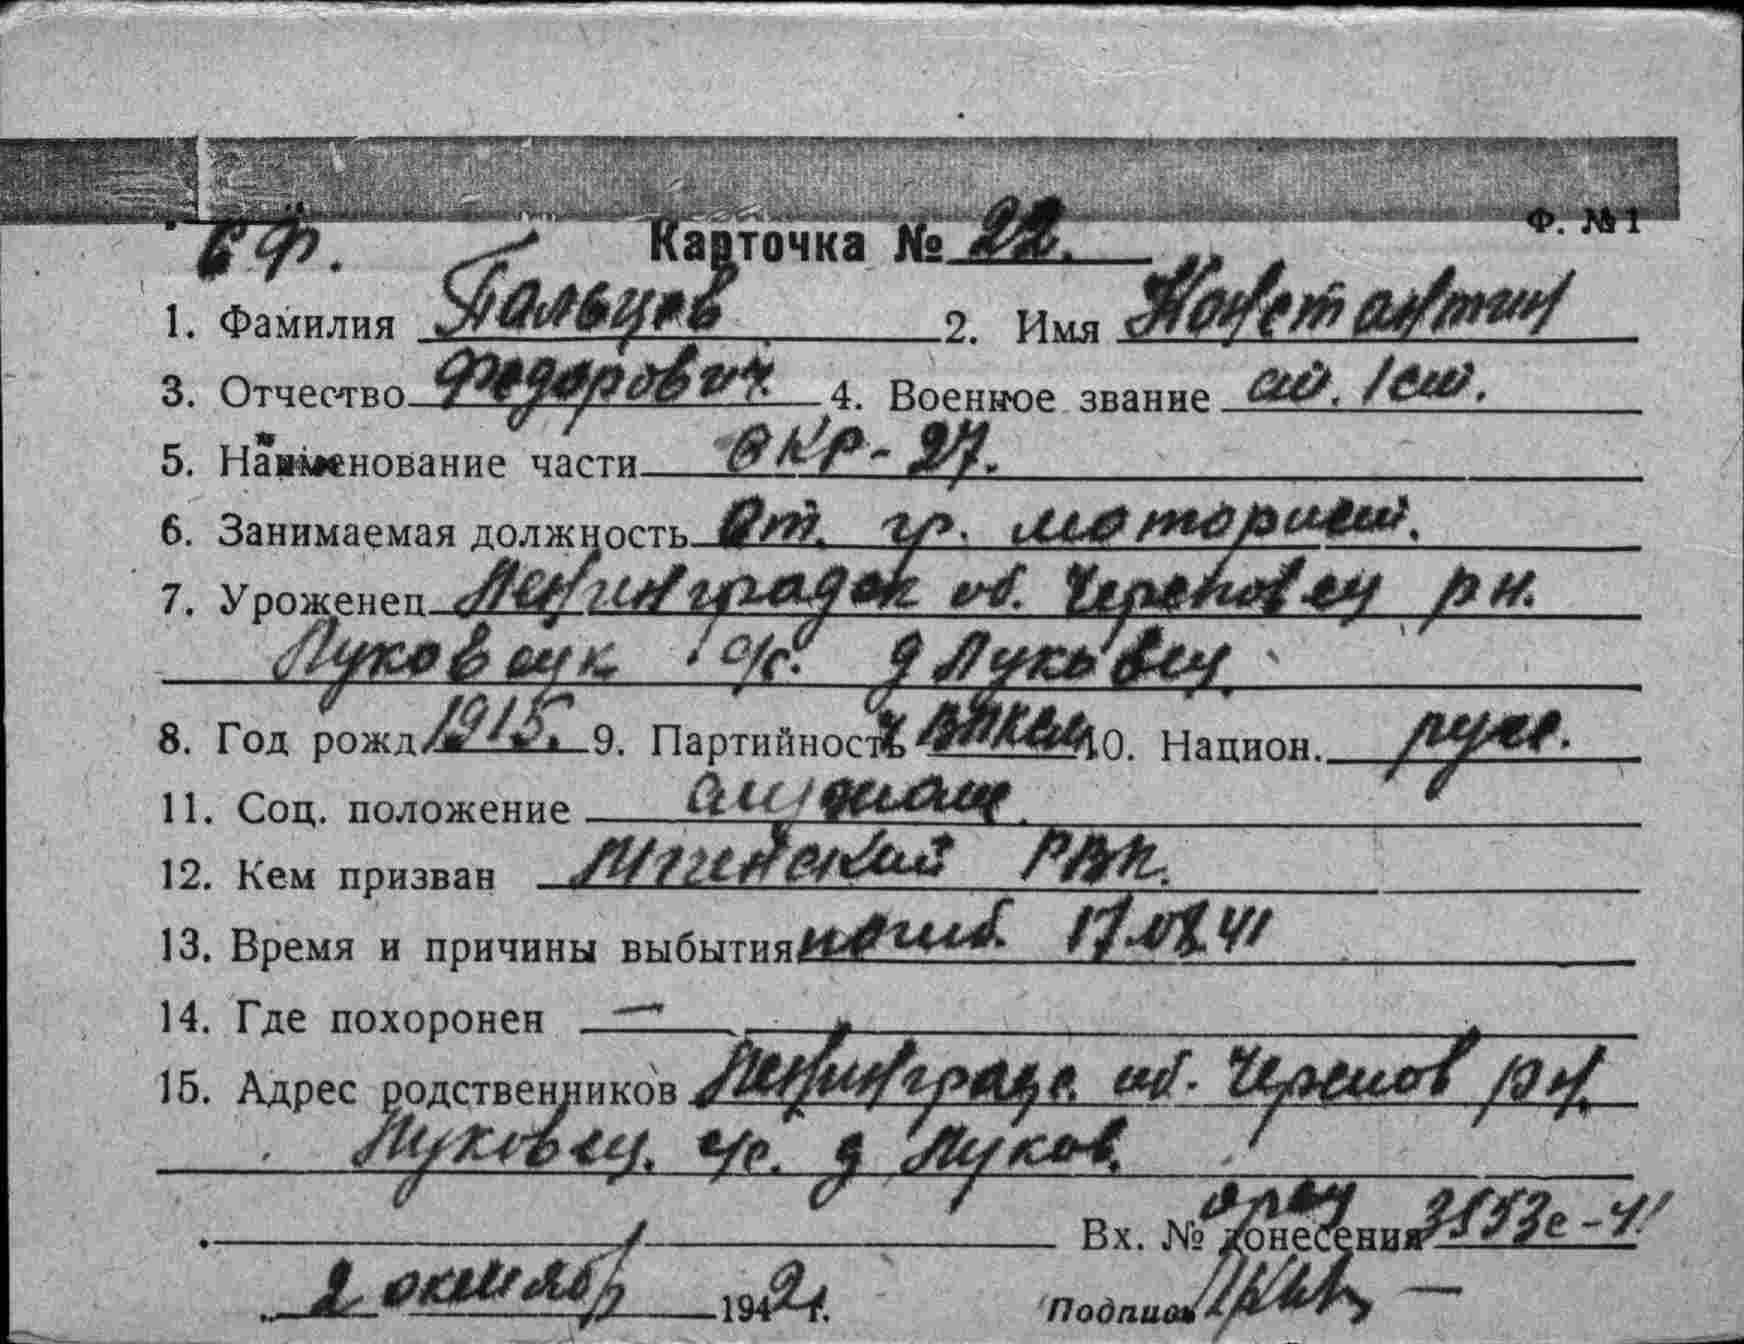 Ф. №1
БФ. Карточка № 22.
1. Фамилия Пальцев 2. Имя Константин
3. Отчество Федорович 4. Военное звание
5. Наименование части ОКР-27.
6. Занимаемая должность От. гр. моторист.
7. Уроженец Ленинградск об. Череповец р н.
Луковецк с/с. д Луковец
8. Год рожд 1915. 9. Партийность ч ВЛКСМ 10. Национ. русс.
11. Соц. положение служащ.
12. Кем призван Мгинский РВК.
13. Время и причины выбытия погиб. 17.09.41
14. Где похоронен —
15. Адрес родственников Ленинград. об. Черепов р н.
Луковец. с/с. д Луков.
Вх. № донесения
2 октября 1942 г. Подпись